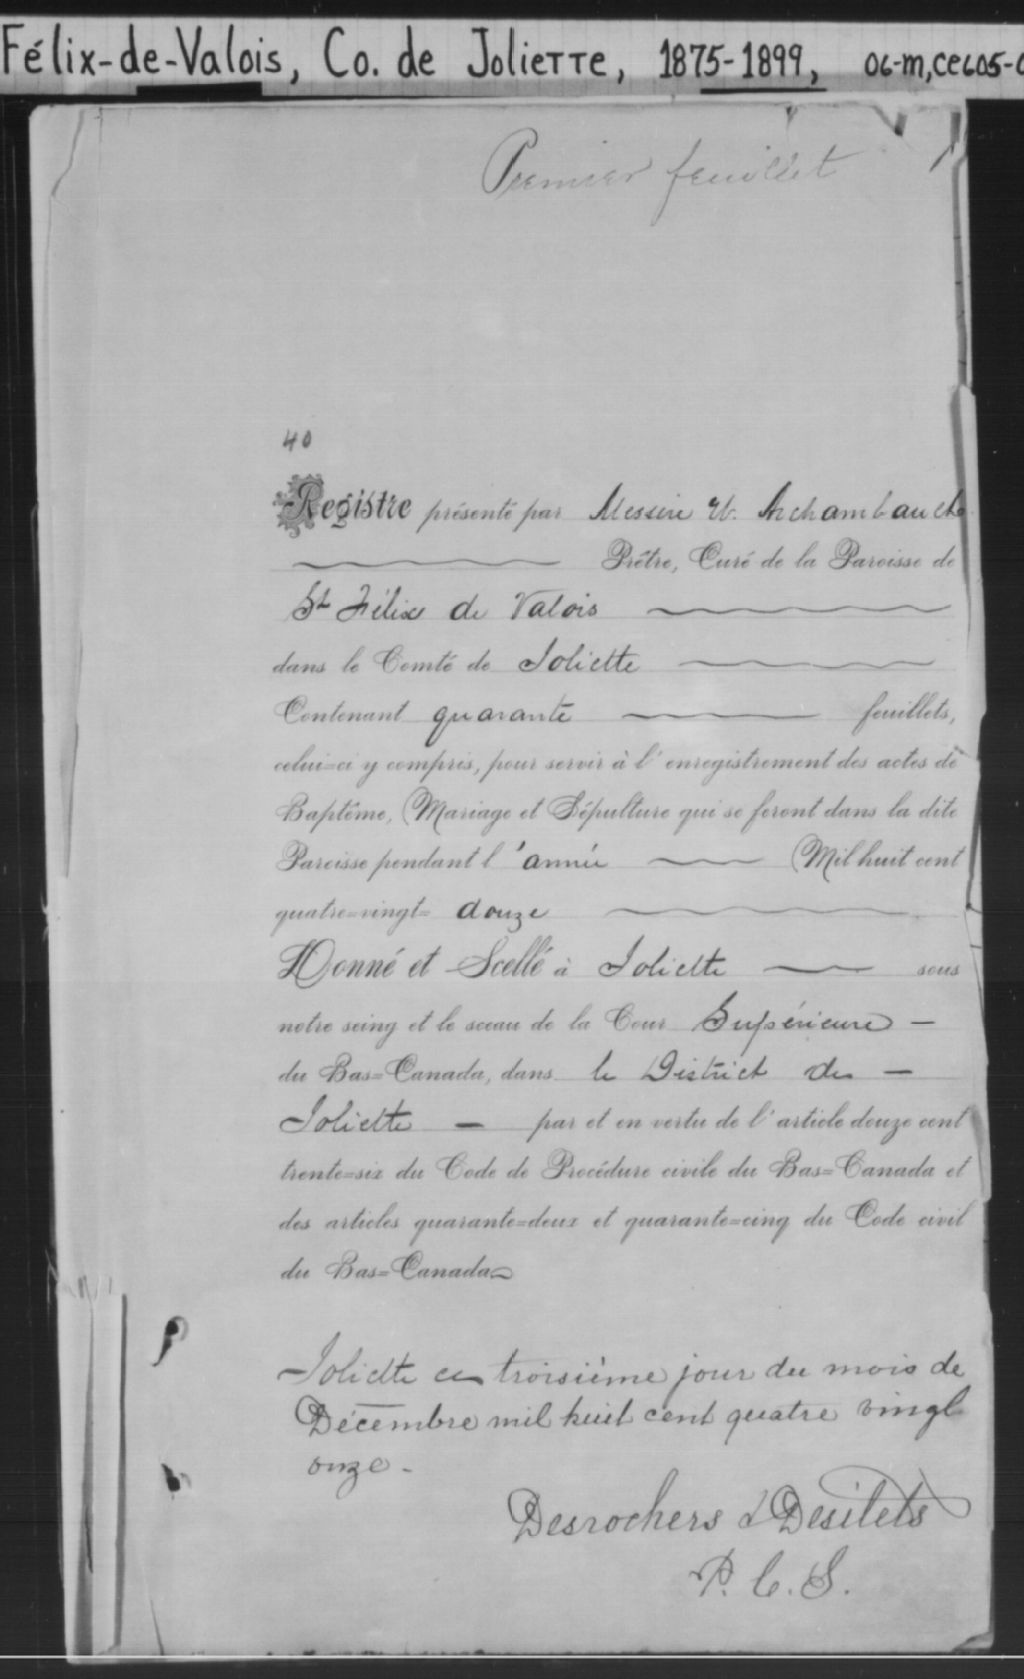 Félix-de-Valois, Co. de Joliette, 1875-1899, 06-m,ce605-
Premier feuillet
40
Registre présenté par Messire U. Archambault
Prêtre, Curé de la Paroisse de
St Félix de Valois
dans le Comté de Joliette
Contenant quarante feuillets,
celui=ci y compris, pour servir à l'enregistrement des actes de
Baptême, Mariage et Sépulture qui se feront dans la dite
Paroisse pendant l'année Mil huit cent
quatre=vingt= douze
Donné et Scellé à Joliette sous
notre seing et le sceau de la Cour Supérieure -
du Bas=Canada, dans le District de -
Joliette - par et en vertu de l'article douze cent
trente=six du Code de Procédure civile du Bas=Canada et
des articles quarante=deux et quarante=cinq du Code civil
du Bas=Canada
Joliette ce troisième jour du mois de
Décembre mil huit cent quatre vingt
onze -
Desrochers & Desilets
P. C. S.